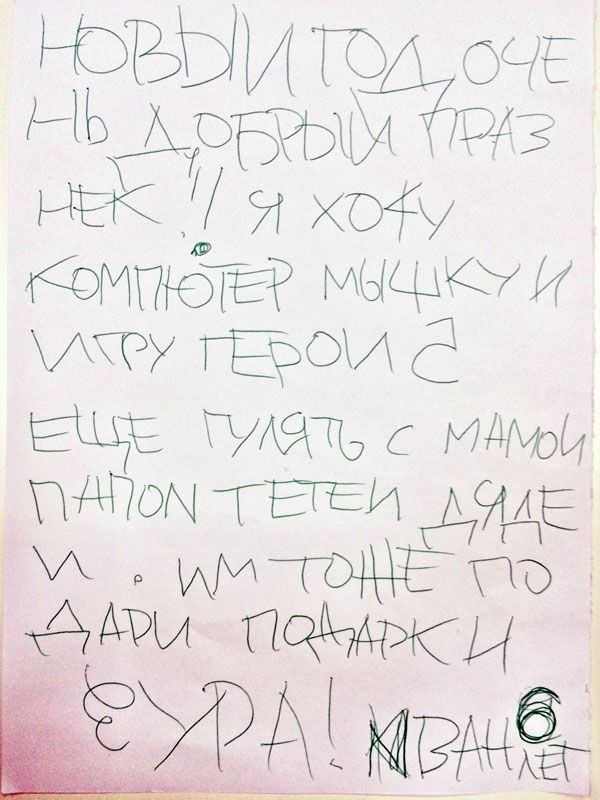 НОВЫЙ ГОД ОЧЕ
НЬ ДОБРЫЙ ПРАЗ
НЕК !! Я ХОЧУ
КОМПЮТЕР МЫШКУ И
ИГРУ ГЕРОИ 5
ЕЩЕ ГУЛЯТЬ С МАМОИ
ПАПОИ ТЕТЕИ ДЯДЕ
И . ИМ ТОЖЕ ПО
ДАРИ ПОДАРКИ
УРА! ИВАН 6
ЛЕТ